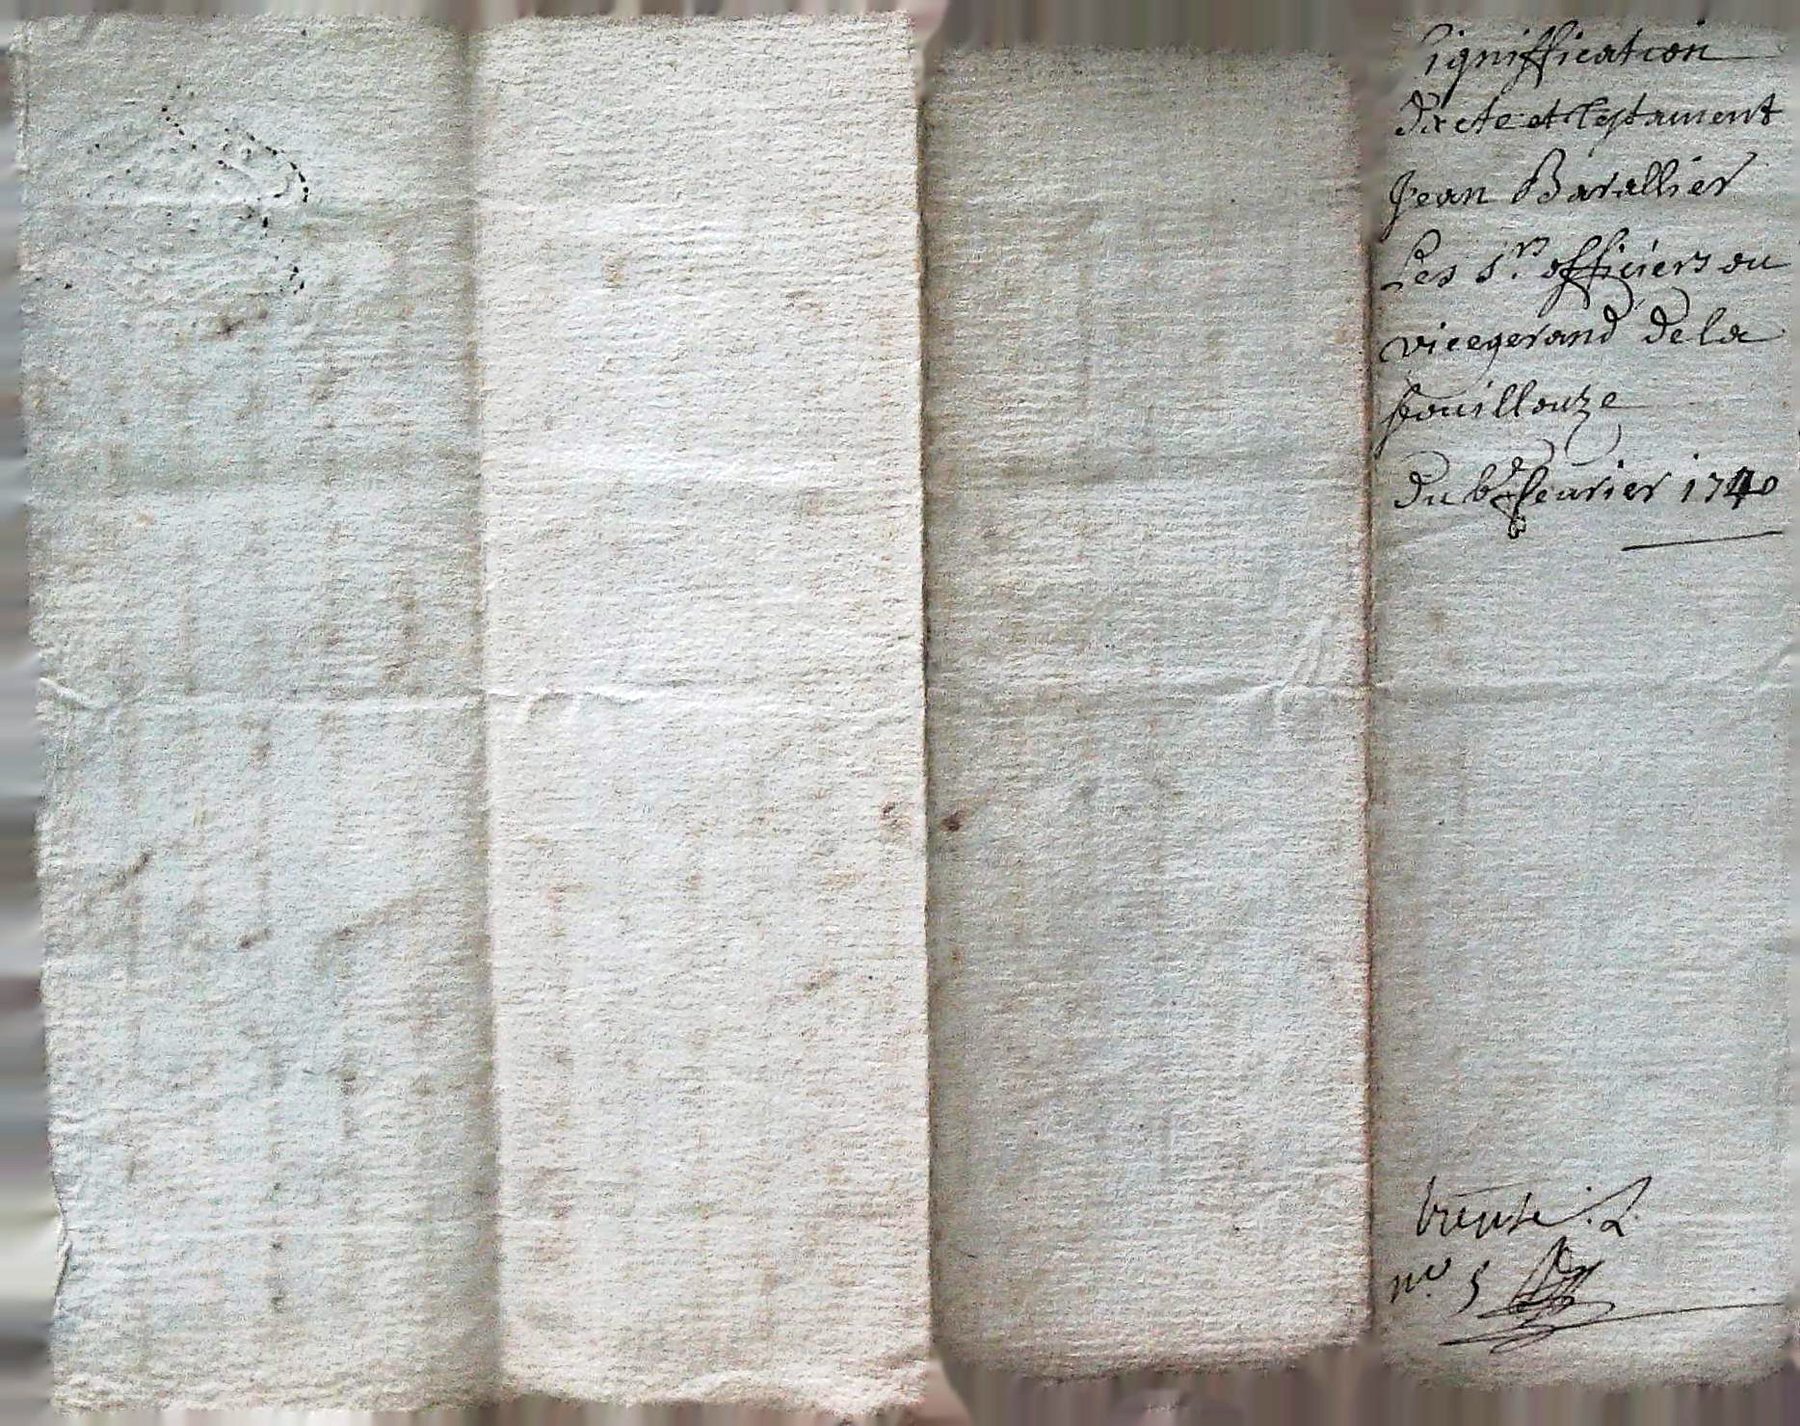 Signiffication
d'acte et testament
Jean Barallier
Les s.rs officiers ou
vicegerand de la
fouillouze
du 6e feurier 1740
trente .L.
n.o 5